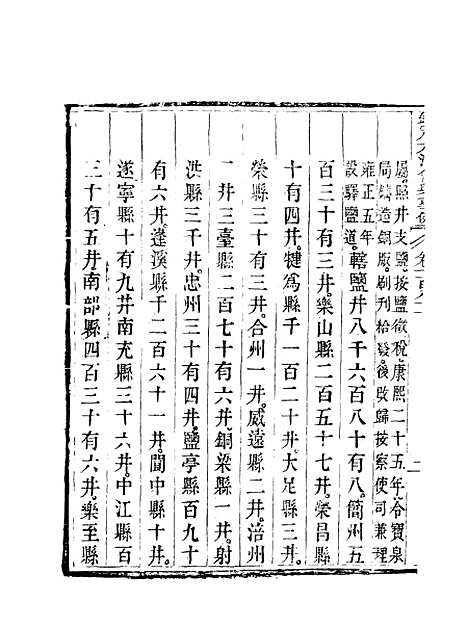 屬照井支鹽。按鹽徵稅。康熙二十五年。令寶泉
局鑄造銅版。刷刊給發。後改歸按察使司兼理。
雍正五年
設驛鹽道。轄鹽井八千六百八十有八。簡州五
百三十有三井。樂山縣二百五十七井。榮昌縣
十有四井。犍爲縣千一百二十井。大足縣三井。
榮縣三十有三井。合州一井。威遠縣二井。涪州
一井。三臺縣二百七十有六井。銅梁縣一井。射
洪縣三千井。忠州三十有四井。鹽亭縣百九十
有六井。蓬溪縣千二百六十一井。閬中縣十井。
遂寧縣十有九井。南充縣三十六井。中江縣百
三十有五井。南部縣四百三十有六井。樂至縣